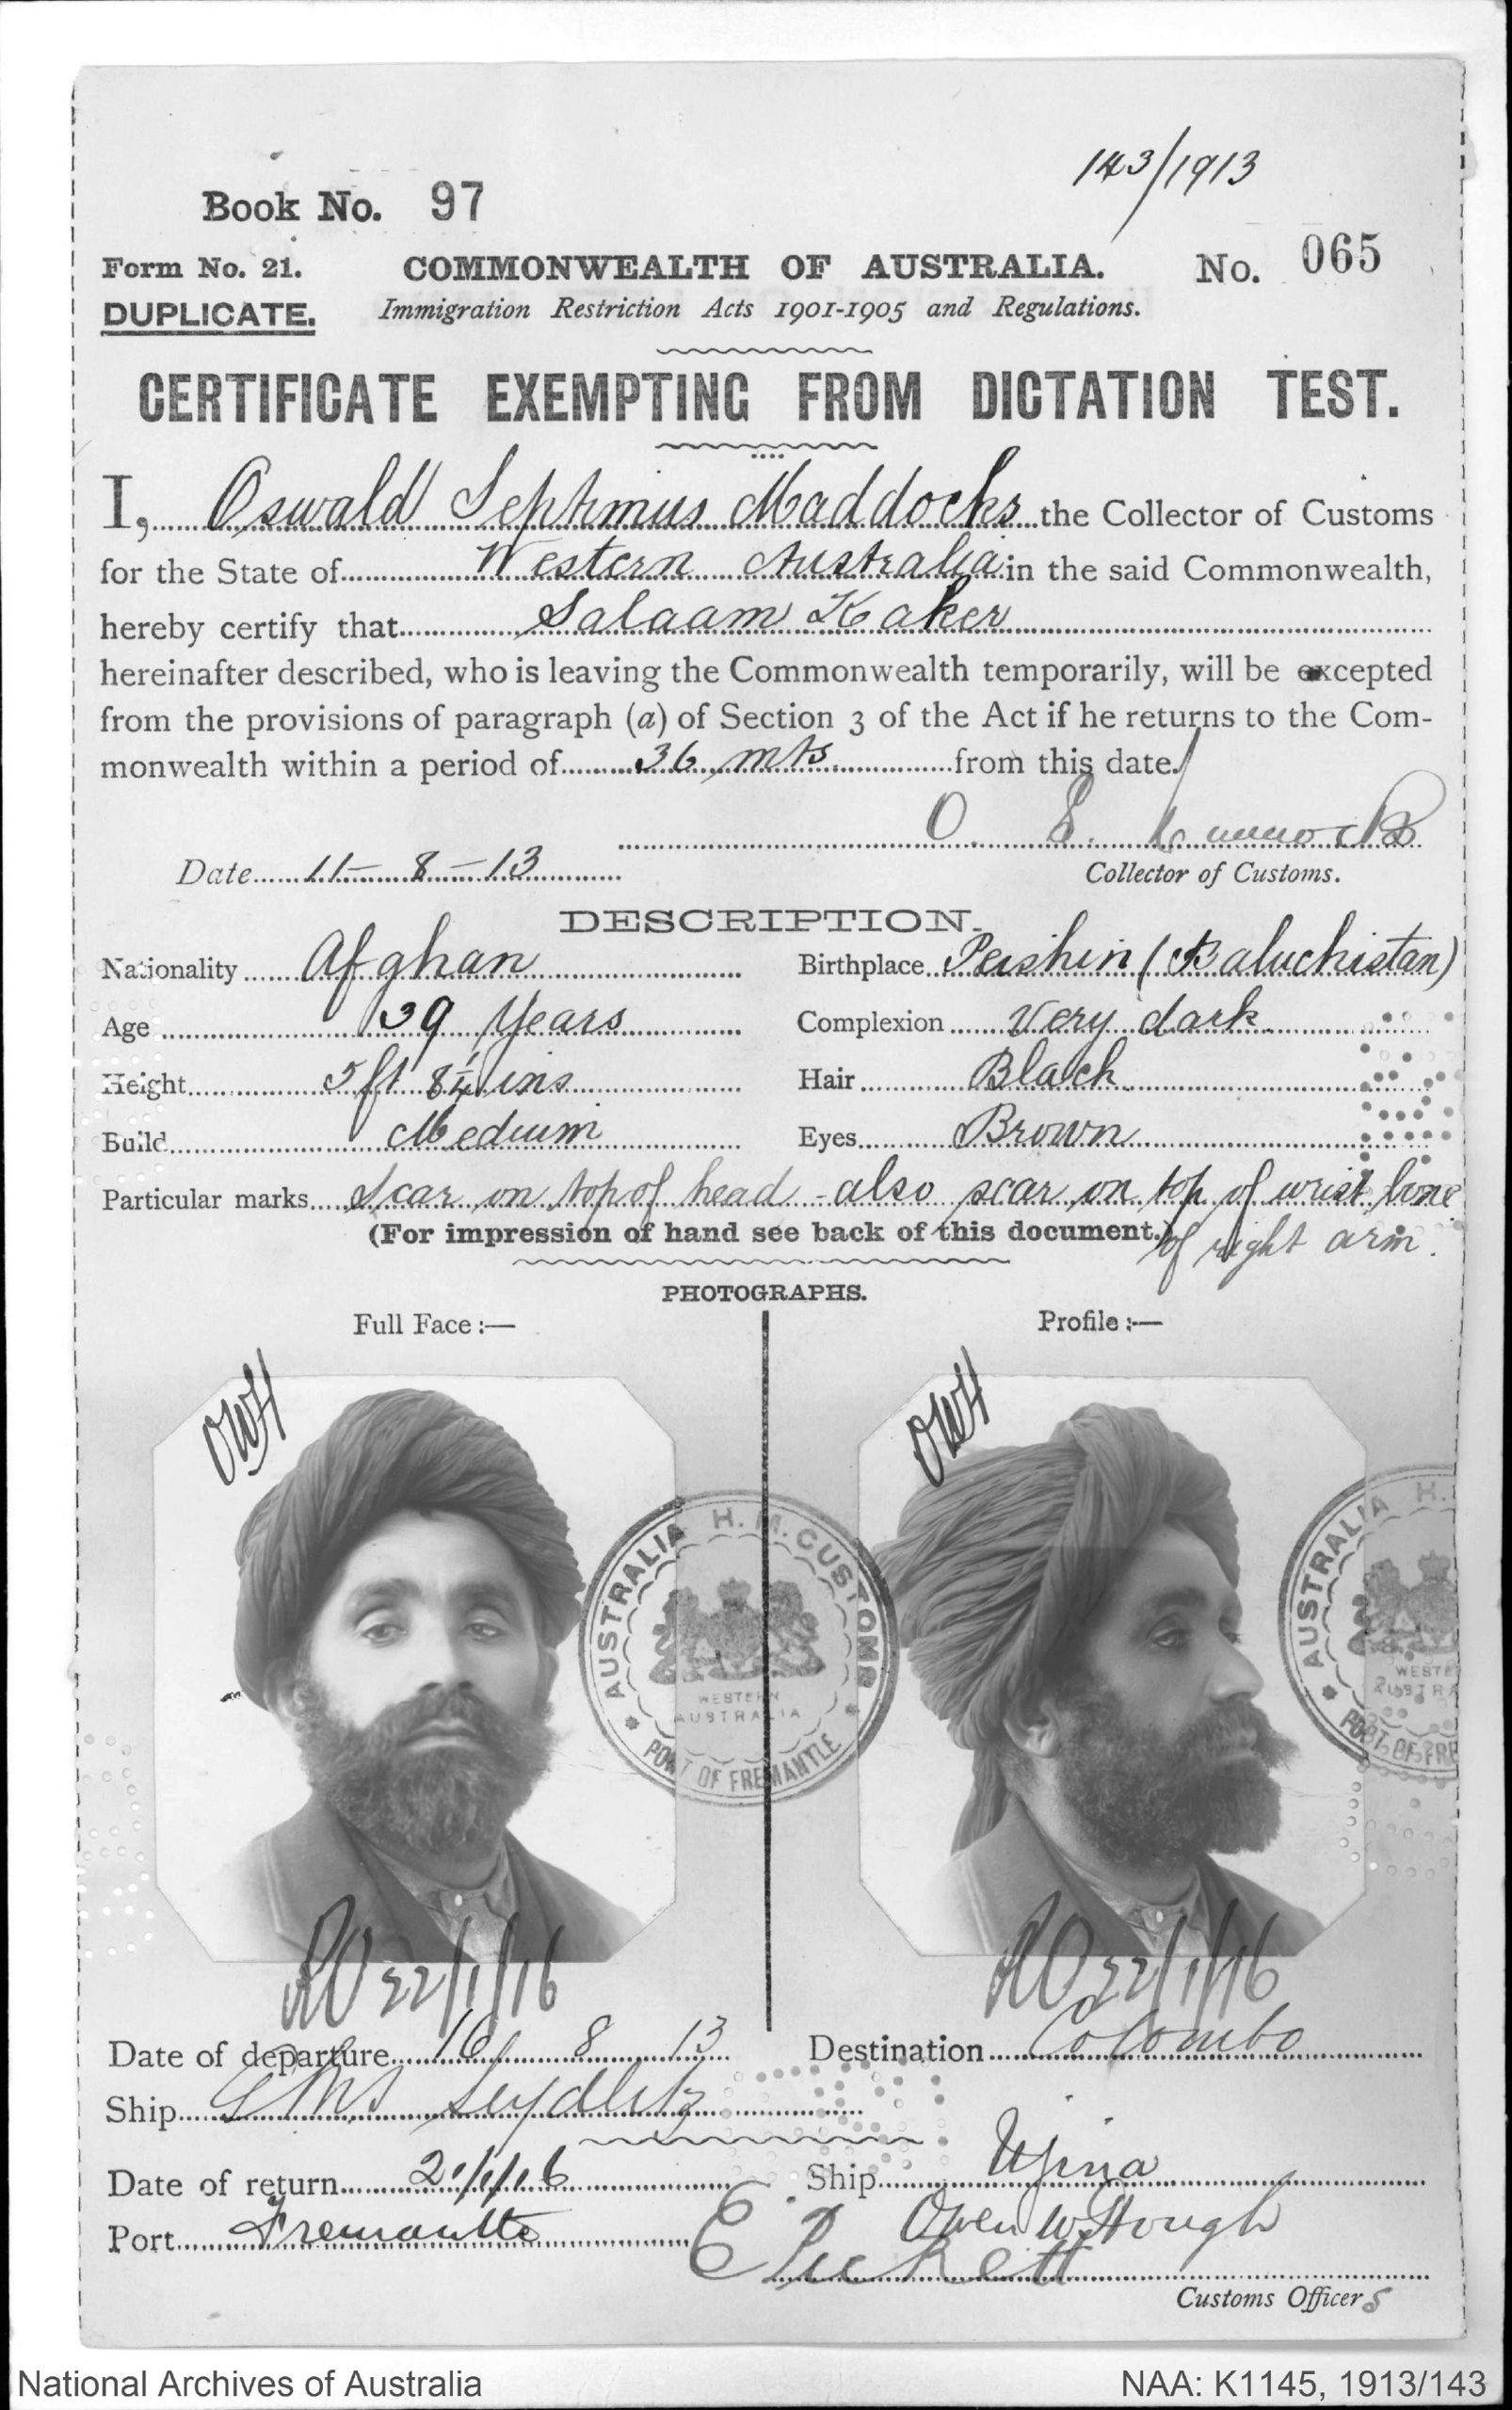 143/1913
Book No. 97
Form No. 21. COMMONWEALTH OF AUSTRALIA. No. 065
DUPLICATE. Immigration Restriction Acts 1901-1905 and Regulations.
CERTIFICATE EXEMPTING FROM DICTATION TEST.
I, Oswald Septimus Maddocks the Collector of Customs
for the State of Western Australia in the said Commonwealth,
hereby certify that Salaam Kaker
hereinafter described, who is leaving the Commonwealth temporarily, will be excepted
from the provisions of paragraph (a) of Section 3 of the Act if he returns to the Com-
monwealth within a period of 36 mts from this date.
O. S. Maddocks
Date 11-8-13 Collector of Customs.
DESCRIPTION.
Nationality Afghan Birthplace Peishin (Baluchistan)
Age 39 Years Complexion Very dark
Height 5ft 8¼ ins Hair Black
Build Medium Eyes Brown
Particular marks Scar on top of head - also scar on top of wrist bone
(For impression of hand see back of this document.) of right arm.
PHOTOGRAPHS.
Full Face:— Profile:—
OWH OWH
AUSTRALIA H.M. CUSTOMS WESTERN AUSTRALIA PORT OF FREMANTLE
AUSTRALIA H. WESTE AUSTRA PORT OF FRE
22/1/16 22/1/16
Date of departure 16 8 13 Destination Colombo
Ship GMS Seydlitz
Date of return 2/1/16 Ship Ujina
Port Fremantle Owen W Hough
E Pickett
Customs Officers
National Archives of Australia NAA: K1145, 1913/143